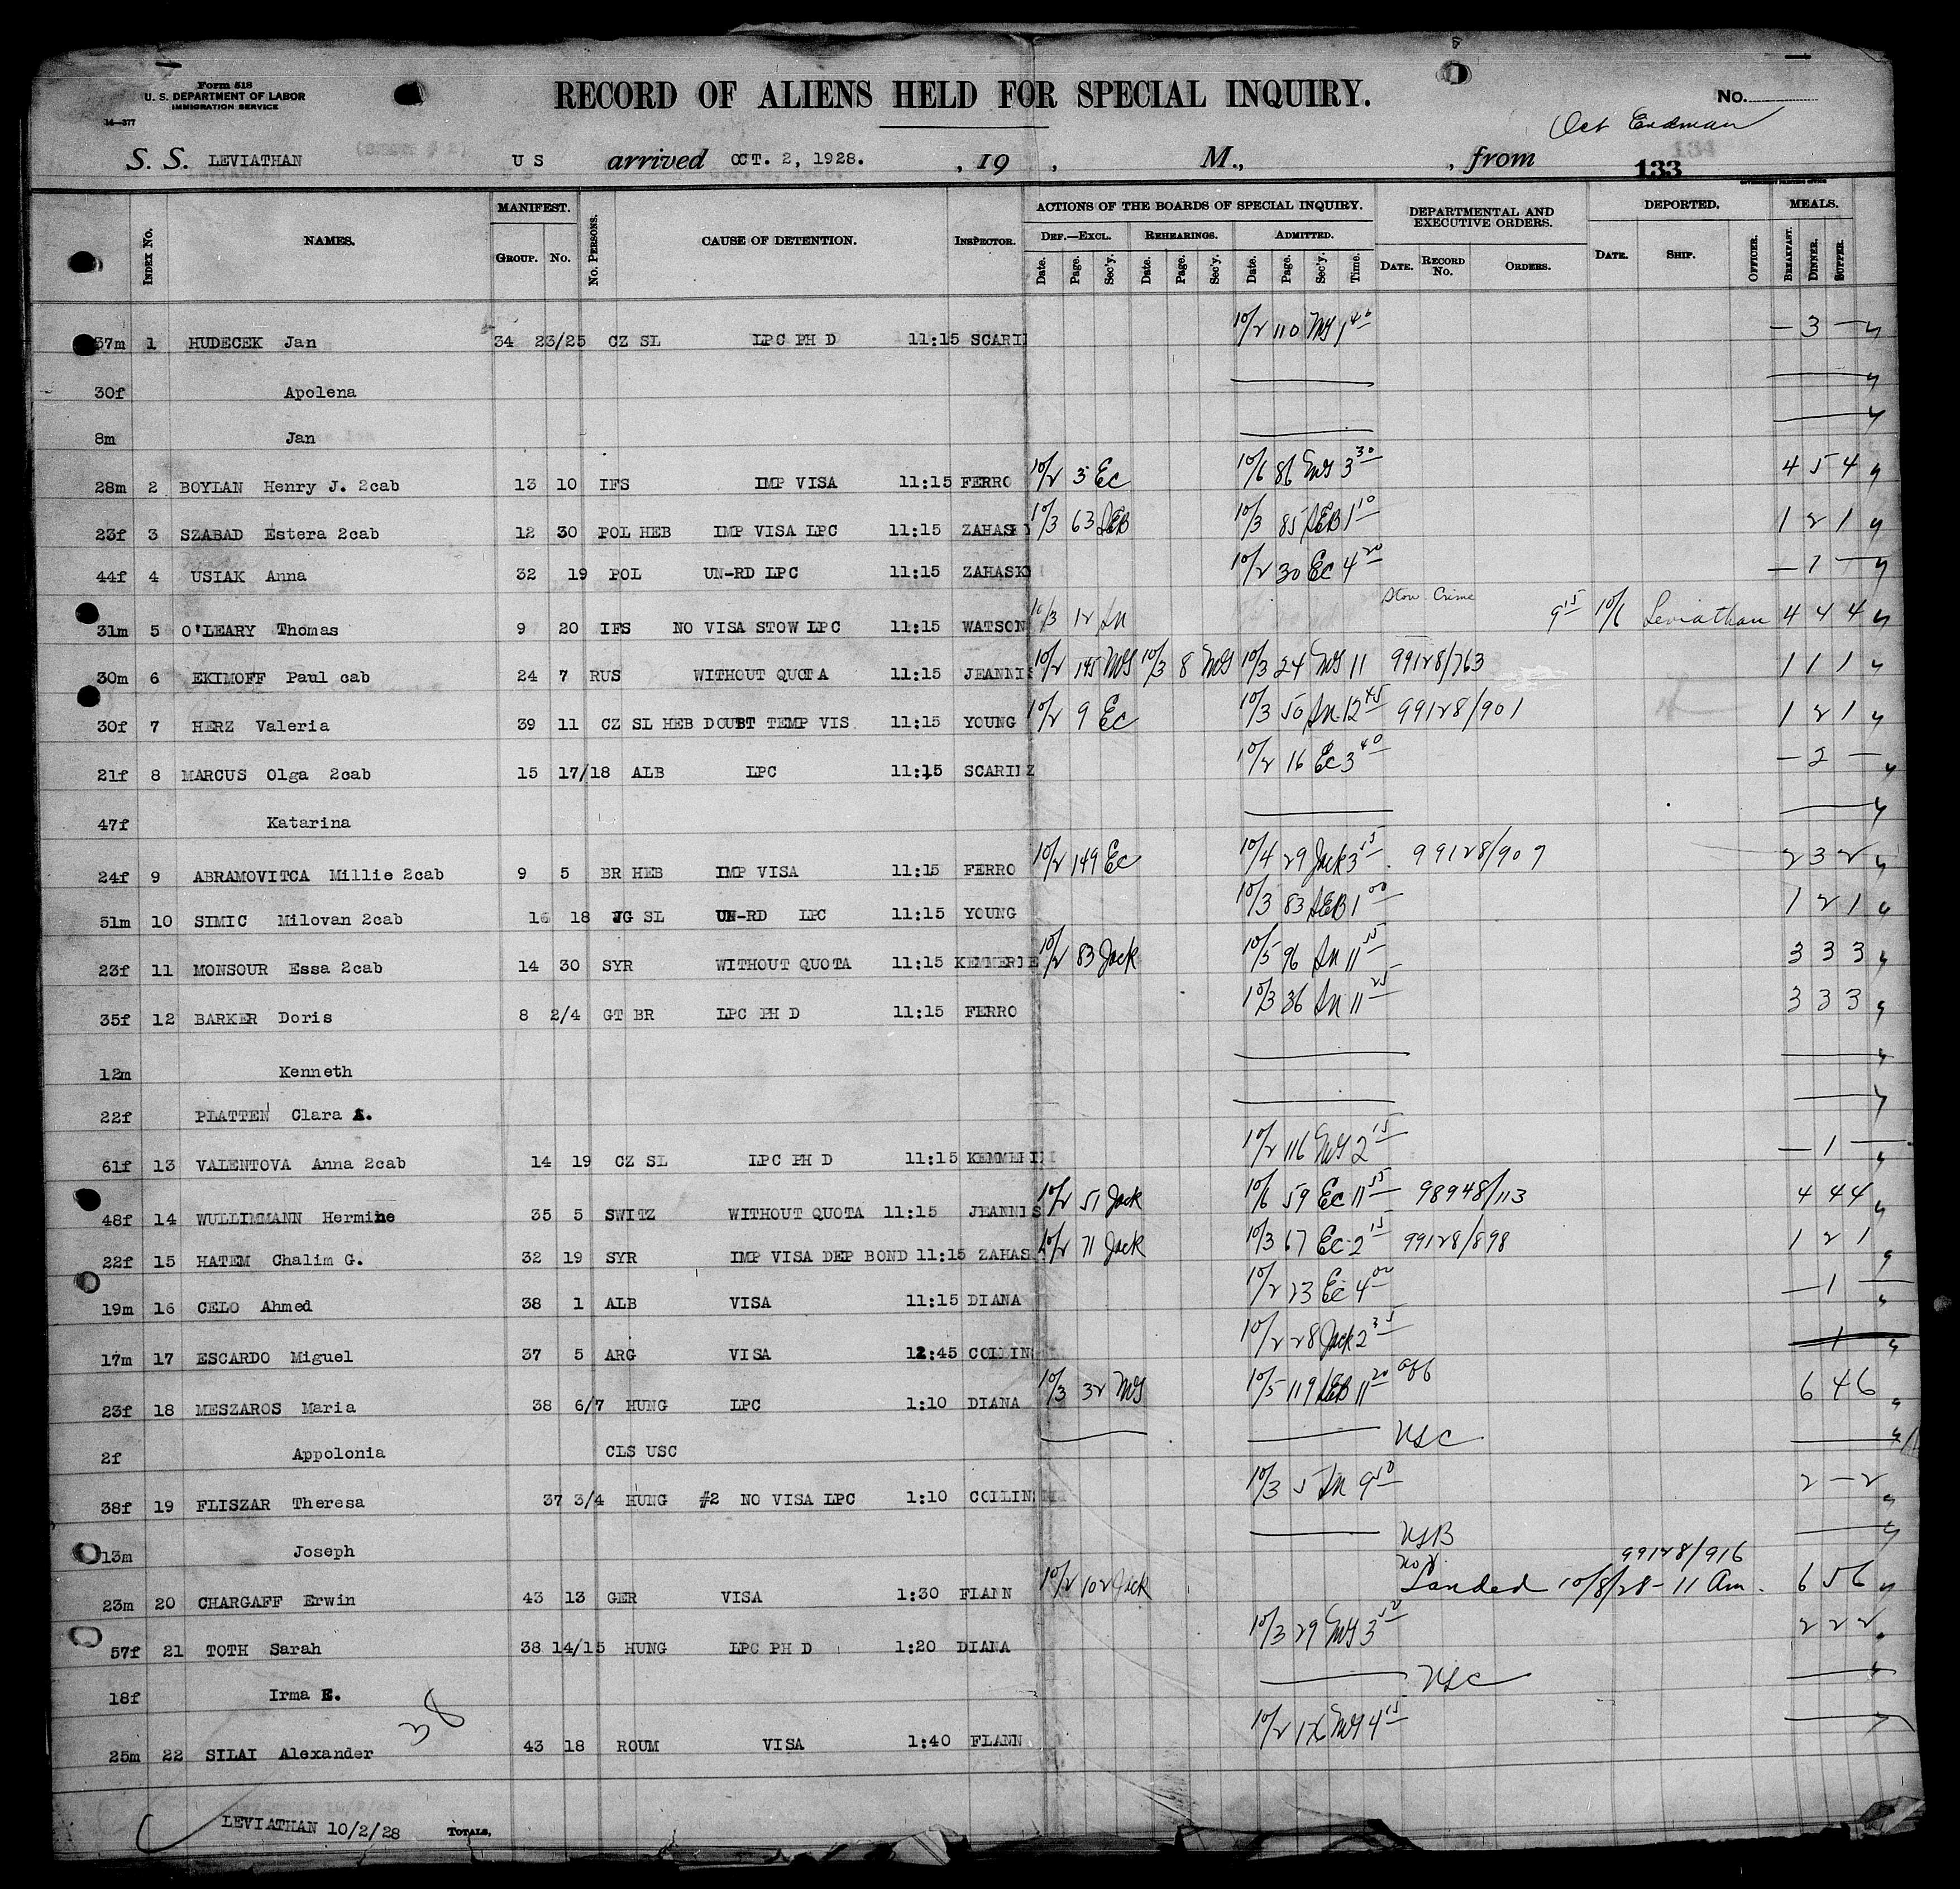 Form 518
U. S. DEPARTMENT OF LABOR
IMMIGRATION SERVICE
14—377
RECORD OF ALIENS HELD FOR SPECIAL INQUIRY.
No.
S. S. LEVIATHAN U S arrived OCT. 2, 1928. , 19 , M., , from 133
GOVERNMENT PRINTING OFFICE
MANIFEST. ACTIONS OF THE BOARDS OF SPECIAL INQUIRY. DEPARTMENTAL AND EXECUTIVE ORDERS. DEPORTED. MEALS.
Index No. NAMES. GROUP. No. No. PERSONS. CAUSE OF DETENTION. INSPECTOR. DEF.—EXCL. REHEARINGS. ADMITTED.
Date. Page. Sec'y. Date. Page. Sec'y. Date. Page. Sec'y. Time. DATE. RECORD No. ORDERS. DATE. SHIP. OFFICER. BREAKFAST. DINNER. SUPPER.
37m 1 HUDECEK Jan 34 23/25 CZ SL LPC PH D 11:15 SCARI 10/2 110 MG 1 40 — 3 —
30f Apolena
8m Jan
28m 2 BOYLAN Henry J. 2cab 13 10 IFS IMP VISA 11:15 FERRO 10/2 3 Ec 10/6 86 MG 3 30 4 5 4
23f 3 SZABAD Estera 2cab 12 30 POL HEB IMP VISA LPC 11:15 ZAHASKY 10/3 63 SEB 10/3 85 SEB 1 10 1 2 1
44f 4 USIAK Anna 32 19 POL UN-RD LPC 11:15 ZAHASKY 10/2 30 Ec 4 20 — 1 —
Stow. Crime
31m 5 O'LEARY Thomas 9 20 IFS NO VISA STOW LPC 11:15 WATSON 10/3 12 Sn 9 15 10/6 Leviathan 4 4 4
30m 6 EKIMOFF Paul cab 24 7 RUS WITHOUT QUOTA 11:15 JEANNIS 10/2 145 MG 10/3 8 MG 10/3 24 MG 11 99128/763 1 1 1
30f 7 HERZ Valeria 39 11 CZ SL HEB DOUBT TEMP VIS 11:15 YOUNG 10/2 9 Ec 10/3 50 Sn 12 45 99128/901 1 2 1
21f 8 MARCUS Olga 2cab 15 17/18 ALB LPC 11:15 SCARIIZ 10/2 16 Ec 3 40 — 2 —
47f Katarina
24f 9 ABRAMOVITCA Millie 2cab 9 5 BR HEB IMP VISA 11:15 FERRO 10/2 149 Ec 10/4 29 Jack 3 15 99128/909 2 3 2
51m 10 SIMIC Milovan 2cab 16 18 JG SL UN-RD LPC 11:15 YOUNG 10/3 83 SEB 1 00 1 2 1
23f 11 MONSOUR Essa 2cab 14 30 SYR WITHOUT QUOTA 11:15 KEMMERIE 10/2 83 Jack 10/5 96 Sn 11 55 3 3 3
35f 12 BARKER Doris 8 2/4 GT BR LPC PH D 11:15 FERRO 10/3 36 Sn 11 25 3 3 3
12m Kenneth
22f PLATTEN Clara A.
61f 13 VALENTOVA Anna 2cab 14 19 CZ SL LPC PH D 11:15 KEMMERI 10/2 116 MG 2 15 — 1 —
48f 14 WULLIMMANN Hermine 35 5 SWITZ WITHOUT QUOTA 11:15 JEANNIS 10/2 51 Jack 10/6 59 Ec 11 55 98948/113 4 4 4
22f 15 HATEM Chalim G. 32 19 SYR IMP VISA DEP BOND 11:15 ZAHAS 10/2 71 Jack 10/3 67 Ec 2 15 99128/898 1 2 1
19m 16 CELO Ahmed 38 1 ALB VISA 11:15 DIANA 10/2 23 Ec 4 00 — 1 —
17m 17 ESCARDO Miguel 37 5 ARG VISA 12:45 COLLINS 10/2 28 Jack 2 35 1
23f 18 MESZAROS Maria 38 6/7 HUNG LPC 1:10 DIANA 10/3 32 MG 10/5 119 SEB 11 20 6 4 6
2f Appolonia CLS USC USC
38f 19 FLISZAR Theresa 37 3/4 HUNG #2 NO VISA LPC 1:10 COLLINS 10/3 5 Sn 9 50 2 — 2
13m Joseph USB
99128/916
23m 20 CHARGAFF Erwin 43 13 GER VISA 1:30 FLANN 10/2 102 Jack Landed 10/8/28 - 11 Am. 6 5 6
57f 21 TOTH Sarah 38 14/15 HUNG LPC PH D 1:20 DIANA 10/3 29 MG 3 50 2 2 2
18f Irma E. USC
25m 22 SILAI Alexander 43 18 ROUM VISA 1:40 FLANN 10/2 MG 4 15
38
LEVIATHAN 10/2/28 TOTALS,